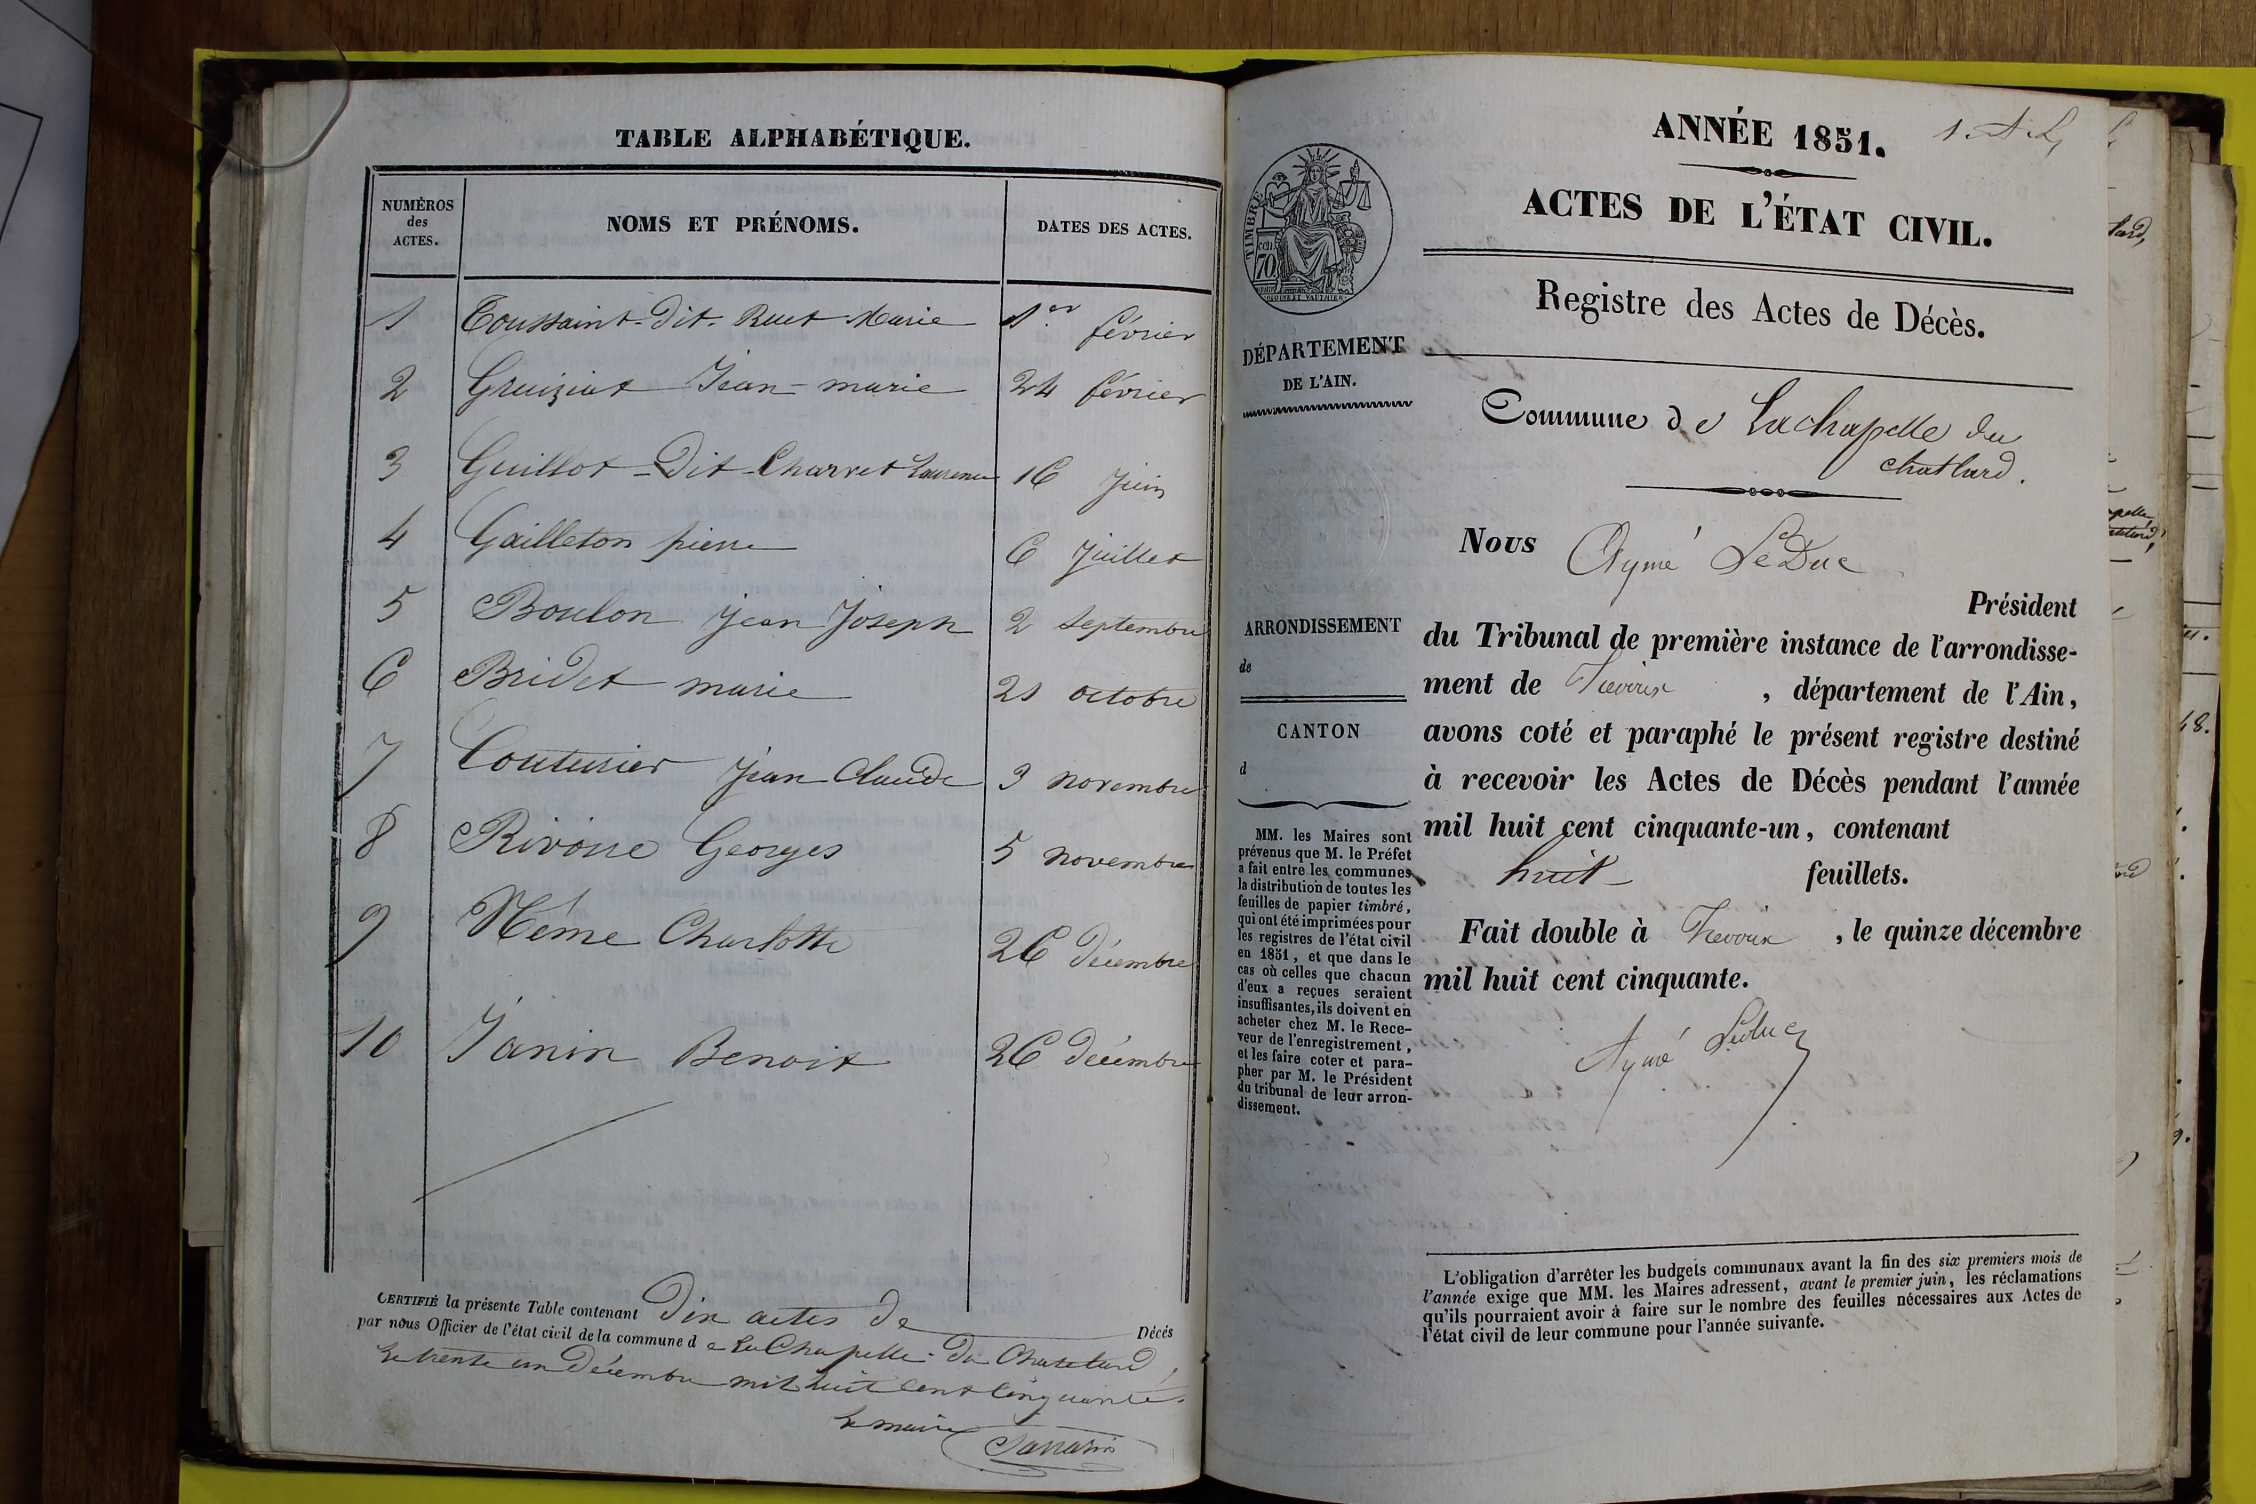 TABLE ALPHABÉTIQUE.
NUMÉROS des ACTES. NOMS ET PRÉNOMS. DATES DES ACTES.
1 Toussaint-Dit-Ruet Marie 1er février
2 Gruiziat Jean-marie 24 février
3 Guillot-Dit-Charvet Laurence 16 Juin
4 Gailleton pierre 6 Juillet
5 Boulon Jean Joseph 2 Septembre
6 Bridet marie 21 octobre
7 Couturier Jean Claude 3 novembre
8 Rivoire Georges 5 novembre
9 Néme Charlotte 26 décembre
10 Janin Benoit 26 décembre
CERTIFIÉ la présente Table contenant Dix actes de Décés
par nous Officier de l'état civil de la commune d e La Chapelle-Du Chatelard,
Le trente un Décembre mil huit cent cinquante.
Le maire
ANNÉE 1851.
ACTES DE L'ÉTAT CIVIL.
Registre des Actes de Décès.
TIMBRE
70
DÉPARTEMENT
DE L'AIN.
Commune de La chapelle du
chatlard.
ARRONDISSEMENT
de
CANTON
d
MM. les Maires sont
prévenus que M. le Préfet
a fait entre les communes
la distribution de toutes les
feuilles de papier timbré,
qui ont été imprimées pour
les registres de l'état civil
en 1851, et que dans le
cas où celles que chacun
d'eux a reçues seraient
insuffisantes, ils doivent en
acheter chez M. le Rece-
veur de l'enregistrement,
et les faire coter et para-
pher par M. le Président
du tribunal de leur arron-
dissement.
Nous Aymé LeDuc
Président
du Tribunal de première instance de l'arrondisse-
ment de Trevoux , département de l'Ain,
avons coté et paraphé le présent registre destiné
à recevoir les Actes de Décès pendant l'année
mil huit cent cinquante-un, contenant
huit feuillets.
Fait double à Trevoux , le quinze décembre
mil huit cent cinquante.
Aymé Leduc
L'obligation d'arrêter les budgets communaux avant la fin des six premiers mois de
l'année exige que MM. les Maires adressent, avant le premier juin, les réclamations
qu'ils pourraient avoir à faire sur le nombre des feuilles nécessaires aux Actes de
l'état civil de leur commune pour l'année suivante.